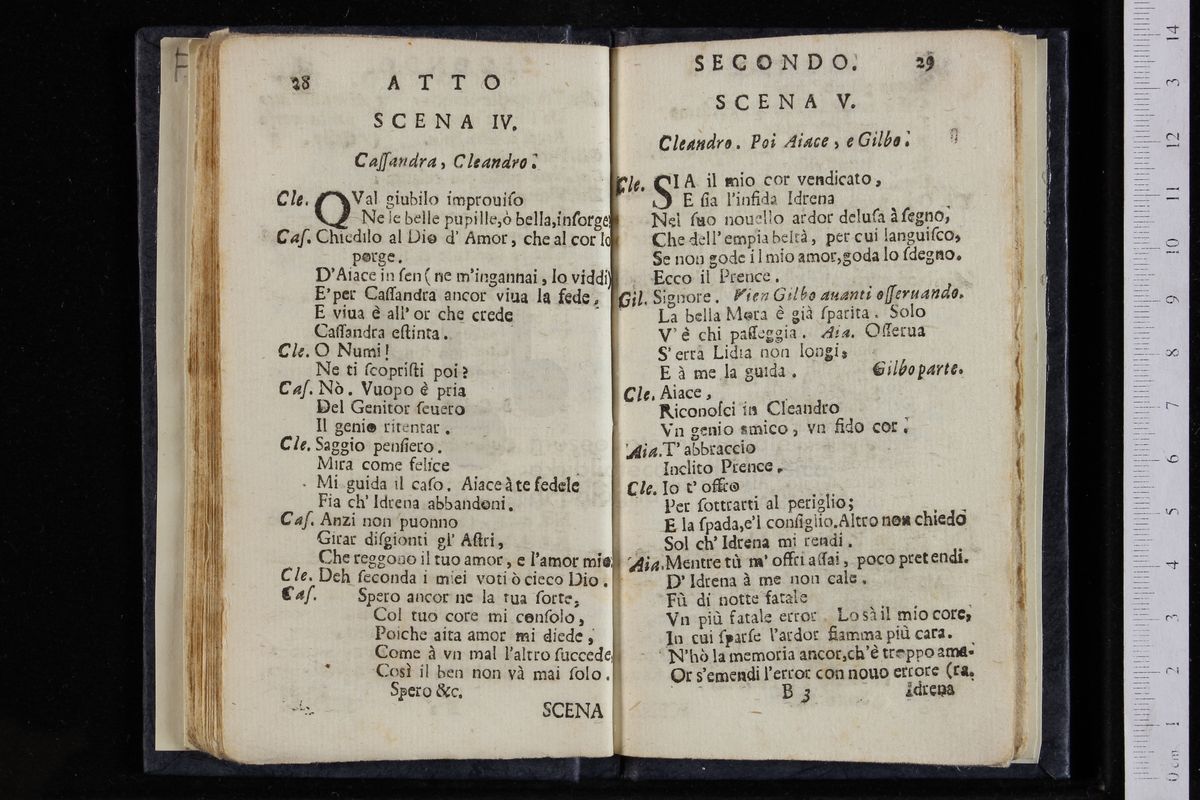 28 ATTO
SCENA IV.
Caſſandra, Cleandro.
Cle. QVal giubilo improuiſo
Ne le belle pupille,ò bella,inſorge;
Caſ. Chiedilo al Dio d' Amor, che al cor lo
porge.
D'Aiace in ſen (ne m'ingannai, lo viddi)
E'per Caſſandra ancor viua la fede,
E viua è all' or che crede
Caſſandra eſtinta.
Cle. O Numi!
Ne ti ſcopriſti poi?
Caſ. Nò. Vuopo è pria
Del Genitor ſeuero
Il genio ritentar.
Cle. Saggio penſiero.
Mira come felice
Mi guida il caſo. Aiace à te fedele
Fia ch' Idrena abbandoni.
Caſ. Anzi non puonno
Girar diſgionti gl' Aſtri,
Che reggono il tuo amor, e l'amor mio.
Cle. Deh ſeconda i miei voti ò cieco Dio.
Caſ. Spero ancor ne la tua ſorte,
Col tuo core mi conſolo,
Poiche aita amor mi diede,
Come à vn mal l'altro ſuccede
Così il ben non và mai ſolo.
Spero &c.
SCENA
SECONDO. 29
SCENA V.
Cleandro. Poi Aiace, e Gilbo.
Cle. SIA il mio cor vendicato,
E ſia l'infida Idrena
Nel ſuo nouello ardor deluſa à ſegno,
Che dell' empia beltà, per cui languiſco,
Se non gode il mio amor,goda lo ſdegno.
Ecco il Prence.
Gil. Signore. Vien Gilbo auanti oſſeruando.
La bella Mora è già ſparita. Solo
V' è chi paſſeggia. Aia. Oſſerua
S' erra Lidia non longi,
E à me la guida. Gilbo parte.
Cle. Aiace,
Riconoſci in Cleandro
Vn genio amico, vn fido cor.
Aia. T' abbraccio
Inclito Prence.
Cle. Io t' offro
Per ſottrarti al periglio;
E la ſpada,e'l conſiglio.Altro non chiedo
Sol ch' Idrena mi rendi.
Aia. Mentre tù m' offri aſſai, poco pretendi.
D' Idrena à me non cale.
Fù di notte fatale
Vn più fatale error Lo sà il mio core,
In cui ſparſe l'ardor fiamma più cara.
N'hò la memoria ancor,ch'è troppo ama-
Or s'emendi l'error con nouo errore (ra.
B 3 Idrena